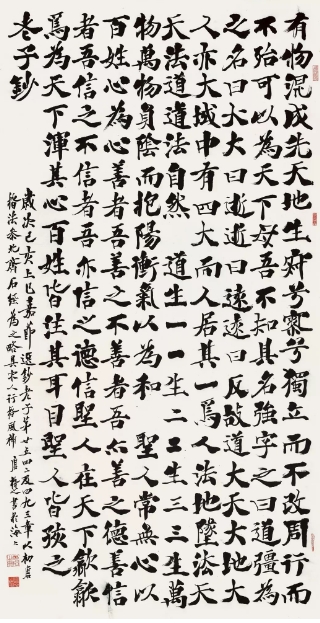 有物混成先天地生寂兮寥兮獨立而不改周行而
不殆可以為天下母吾不知其名強字之曰道彊為
之名曰大大曰逝逝曰遠遠曰反故道大天大地大
人亦大域中有四大而人居其一焉人法地墬法天
天法道道法自然 道生一一生二二生三三生萬
物萬物負陰而抱陽衝氣以為和 聖人常無心以
百姓心為心善者吾善之不善者吾亦善之德善信
者吾信之不信者吾亦信之德信聖人在天下歙歙
焉為天下渾其心百姓皆注其耳目聖人皆孩之
老子鈔
歲次己亥上巳嘉節選鈔老子第廿五四二及四九三章以初唐
褚法參北齊石經為之略具宋人行楷風神 書於海上